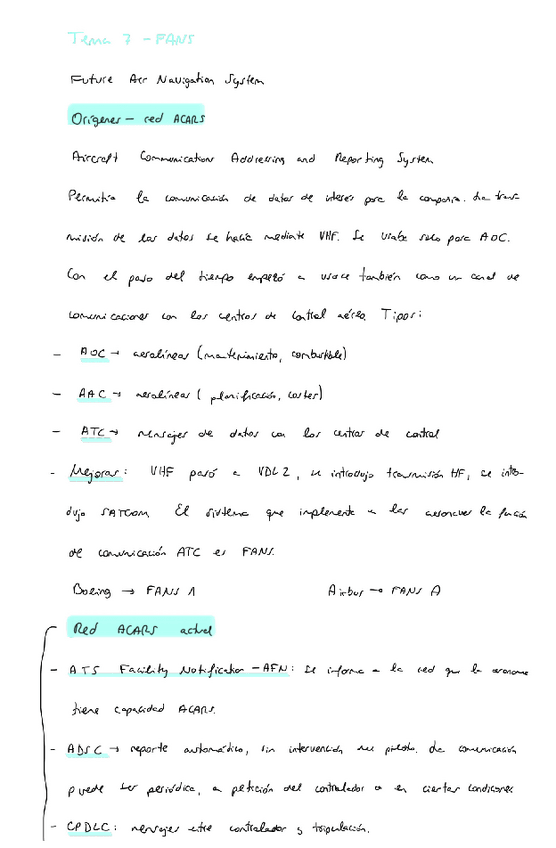 Tema 7 - FANS
Future Air Navigation System
Orígenes - red ACARS
Aircraft Communication Addressing and Reporting System
Permitía la comunicación de datos de interés para la compañía. La trans
misión de los datos se hacía mediante VHF. Se usaba solo para AOC.
Con el paso del tiempo empezó a usarse también como un canal de
comunicaciones con los centros de control aéreo. Tipos:
- AOC → aerolíneas (mantenimiento, combustible)
- AAC → aerolíneas ( planificación, costes)
- ATC → mensajes de datos con los centros de control
- Mejoras: VHF pasó a VDL2, se introdujo transmisión HF, se intro-
dujo SATCOM. El sistema que implementa en las aeronaves la función
de comunicación ATC es FANS.
Boeing → FANS 1 Airbus → FANS A
Red ACARS actual
- ATS Facility Notification - AFN: se informa a la red que la aeronave
tiene capacidad ACARS.
- ADSC → reporte automático, sin intervención del piloto. La comunicación
puede ser periódica, a petición del controlador o en ciertas condiciones
- CPDLC: mensajes entre controlador y tripulación.